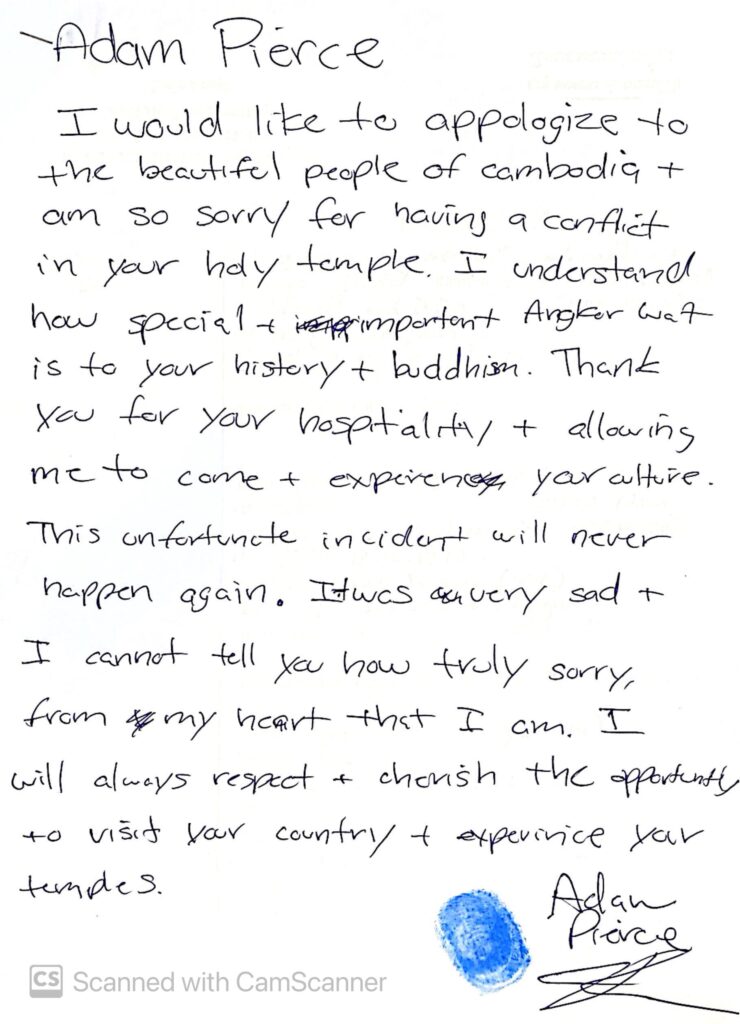 Adam Pierce
I would like to appologize to
the beautiful people of cambodia +
am so sorry for having a conflict
in your holy temple. I understand
how special + important Angker Wat
is to your history + buddhism. Thank
you for your hospitality + allowing
me to come + your culture.
This unfortunate incident will never
happen again. It was very sad +
I cannot tell you how truly sorry,
from my heart that I am. I
will always respect + cherish the opportunity
to visit your country + experince your
temples.
Adam
Pierce
CS Scanned with CamScanner